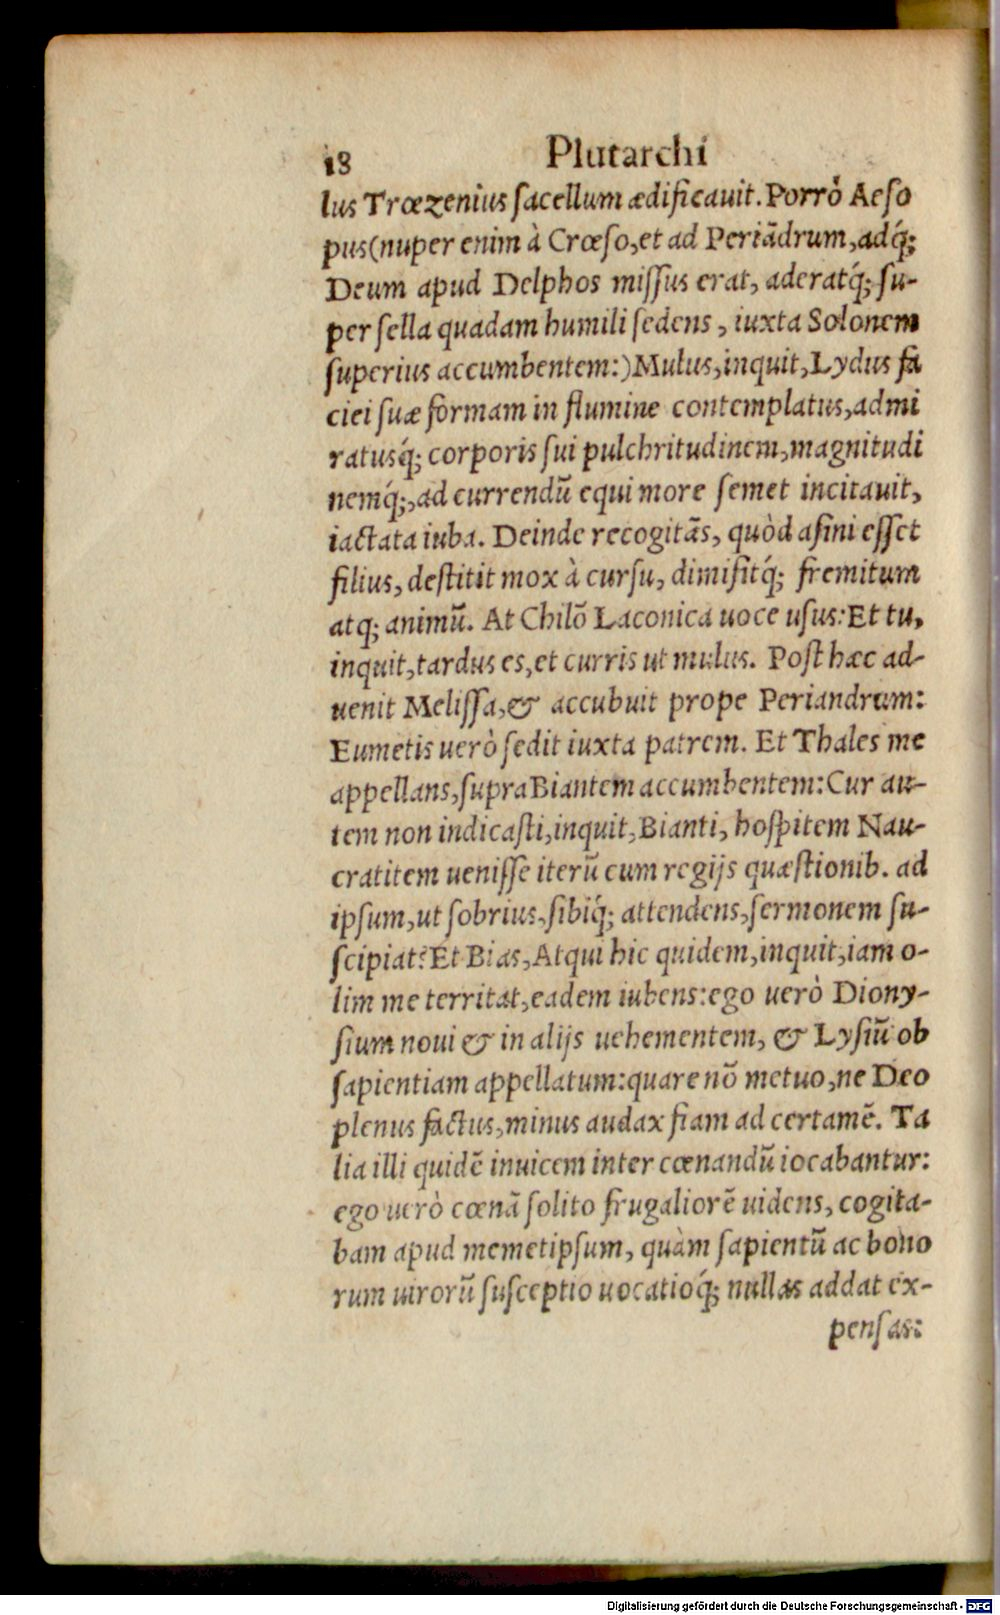 18 Plutarchi
lus Trœzenius sacellum ædificauit. Porrò Aeso
pus(nuper enim à Crœso,et ad Periãdrum,adq́;
Deum apud Delphos missus erat, aderatq́; su-
per sella quadam humili sedens , iuxta Solonem
superius accumbentem:)Mulus,inquit,Lydus fa
ciei suæ formam in flumine contemplatus,admi
ratusq́; corporis sui pulchritudinem,magnitudi
nemq́;,ad currendũ equi more semet incitauit,
iactata iuba. Deinde recogitãs, quòd asini esset
filius, destitit mox à cursu, dimisitq́; fremitum
atq; animũ. At Chilõ Laconica uoce usus:Et tu,
inquit,tardus es,et curris ut mulus. Post hæc ad-
uenit Melissa,& accubuit prope Periandrum:
Eumetis uerò sedit iuxta patrem. Et Thales me
appellans,supra Biantem accumbentem:Cur au-
tem non indicasti,inquit,Bianti, hospitem Nau-
cratitem uenisse iterũ cum regijs quæstionib. ad
ipsum,ut sobrius,sibiq́; attendens,sermonem su-
scipiat?Et Bias,Atqui hic quidem,inquit,iam o-
lim me territat,eadem iubens:ego uerò Diony-
sium noui & in alijs uehementem, & Lysiũ ob
sapientiam appellatum:quare nõ metuo,ne Deo
plenus factus,minus audax fiam ad certamẽ. Ta
lia illi quidẽ inuicem inter cœnandũ iocabantur:
ego uerò cœnã solito frugaliorẽ uidens, cogita-
bam apud memetipsum, quàm sapientũ ac bono
rum uirorũ susceptio uocatioq́; nullas addat ex-
pensas:
Digitalisierung gefördert durch die Deutsche Forschungsgemeinschaft - DFG